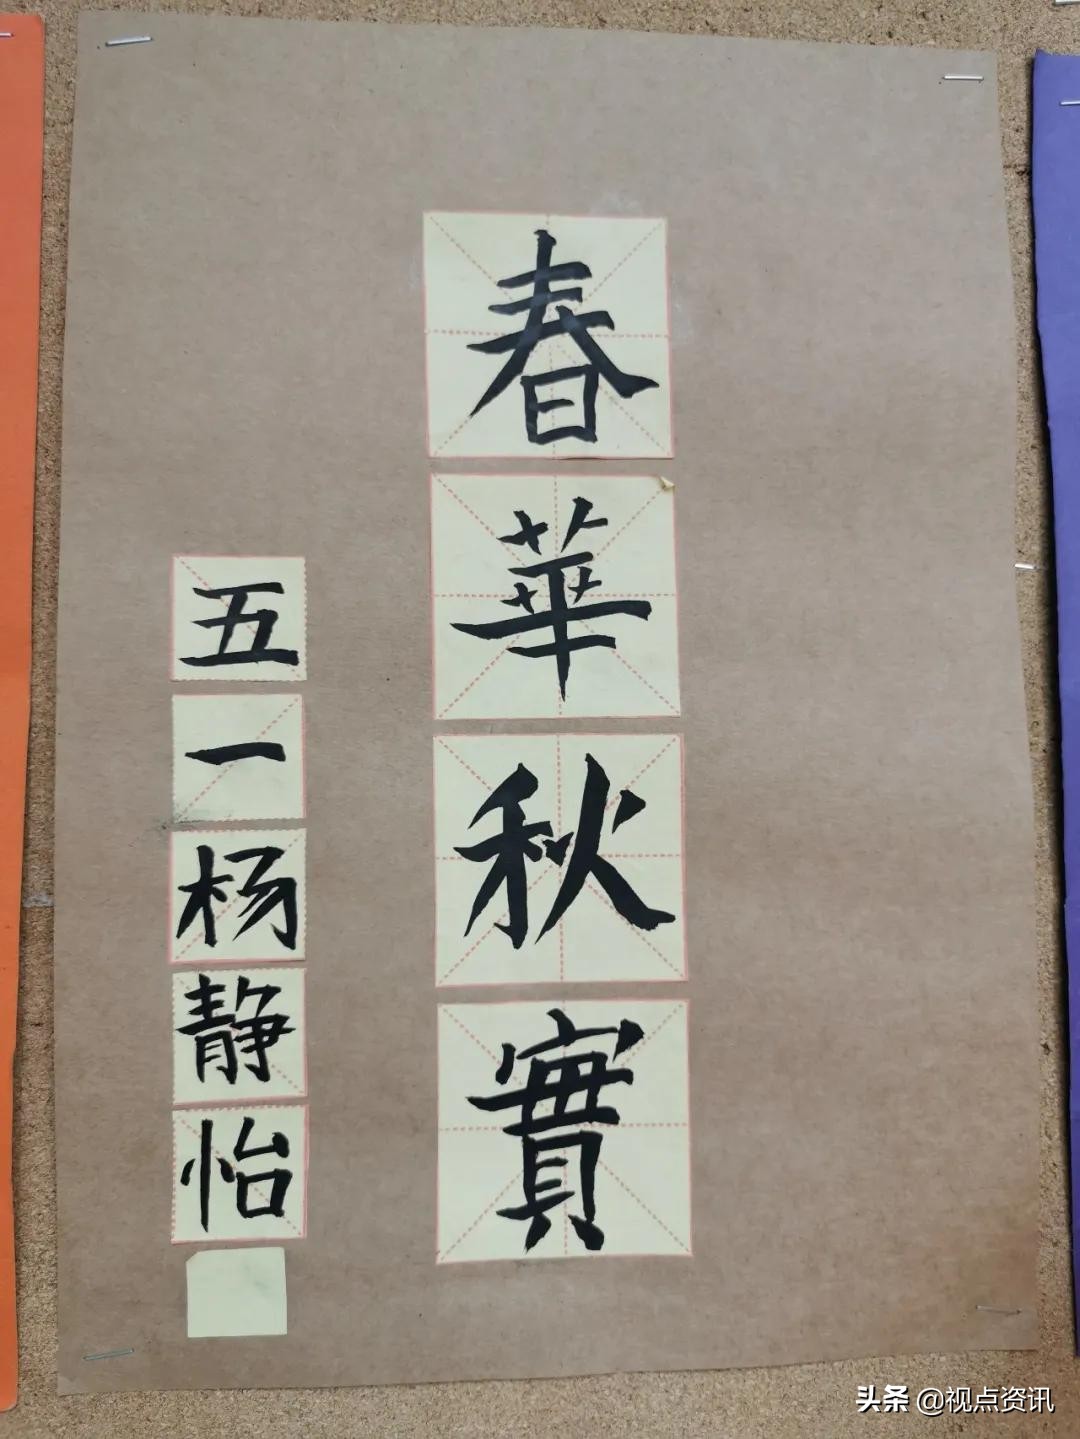 春華秋實
五一杨静怡
头条 @视点资讯